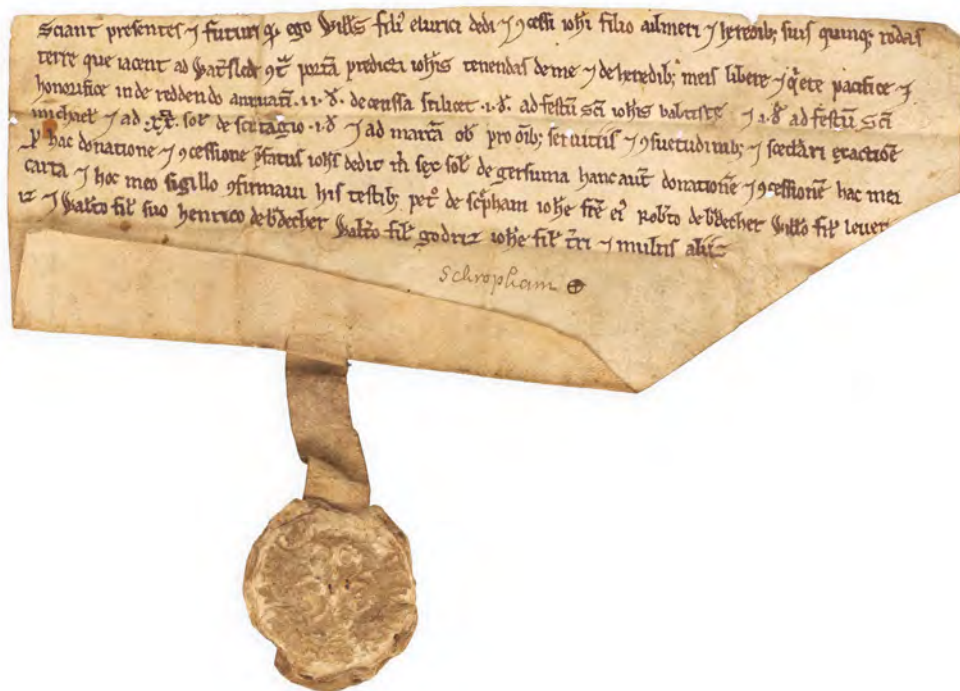 Sciant presentes ⁊ futuri ꝙ ego Willꝭs filiꝰ elurici dedi ⁊ ꝯcessi ioħi filio ailmeri ⁊ heredib; suis quinq; rodas
terre que iacent ad Watsled ꝯt̄ portā predicti ioħis tenendas de me ⁊ de heredib; meis libere ⁊ q̇ete pacifice ⁊
honorifice inde reddendo annuati. 11. ꝺ. de censsa scilicet .1. ꝺ. ad festū sc̄i ioħis babtiste ⁊ .1. ꝺ ad festū sc̄i
michaeł ⁊ ad .xx. soł de scutagio .1. ꝺ ⁊ ad marcā oƀ pro om̄ib; seruitiis ⁊ ꝯsuetudinib; ⁊ seclari exactiōe
ꝓ hac donatione ⁊ ꝯcessione p̄fatus ioħs dedit m̄ sex soł de gersuma hanc aut̄ donationē ⁊ ꝯcessionē hac mei
carta ⁊ hoc meo sigillo ꝯfirmaui his testib; pet° de scp̄ham ioħe frē eiꝰ Roƀto de ƀdecher Willo fił leuer
iz ⁊ Walto fił suo henrico de ƀdecher Walto fił godriz ioħe fił ⁊ multis aliis
Schropham ⊕